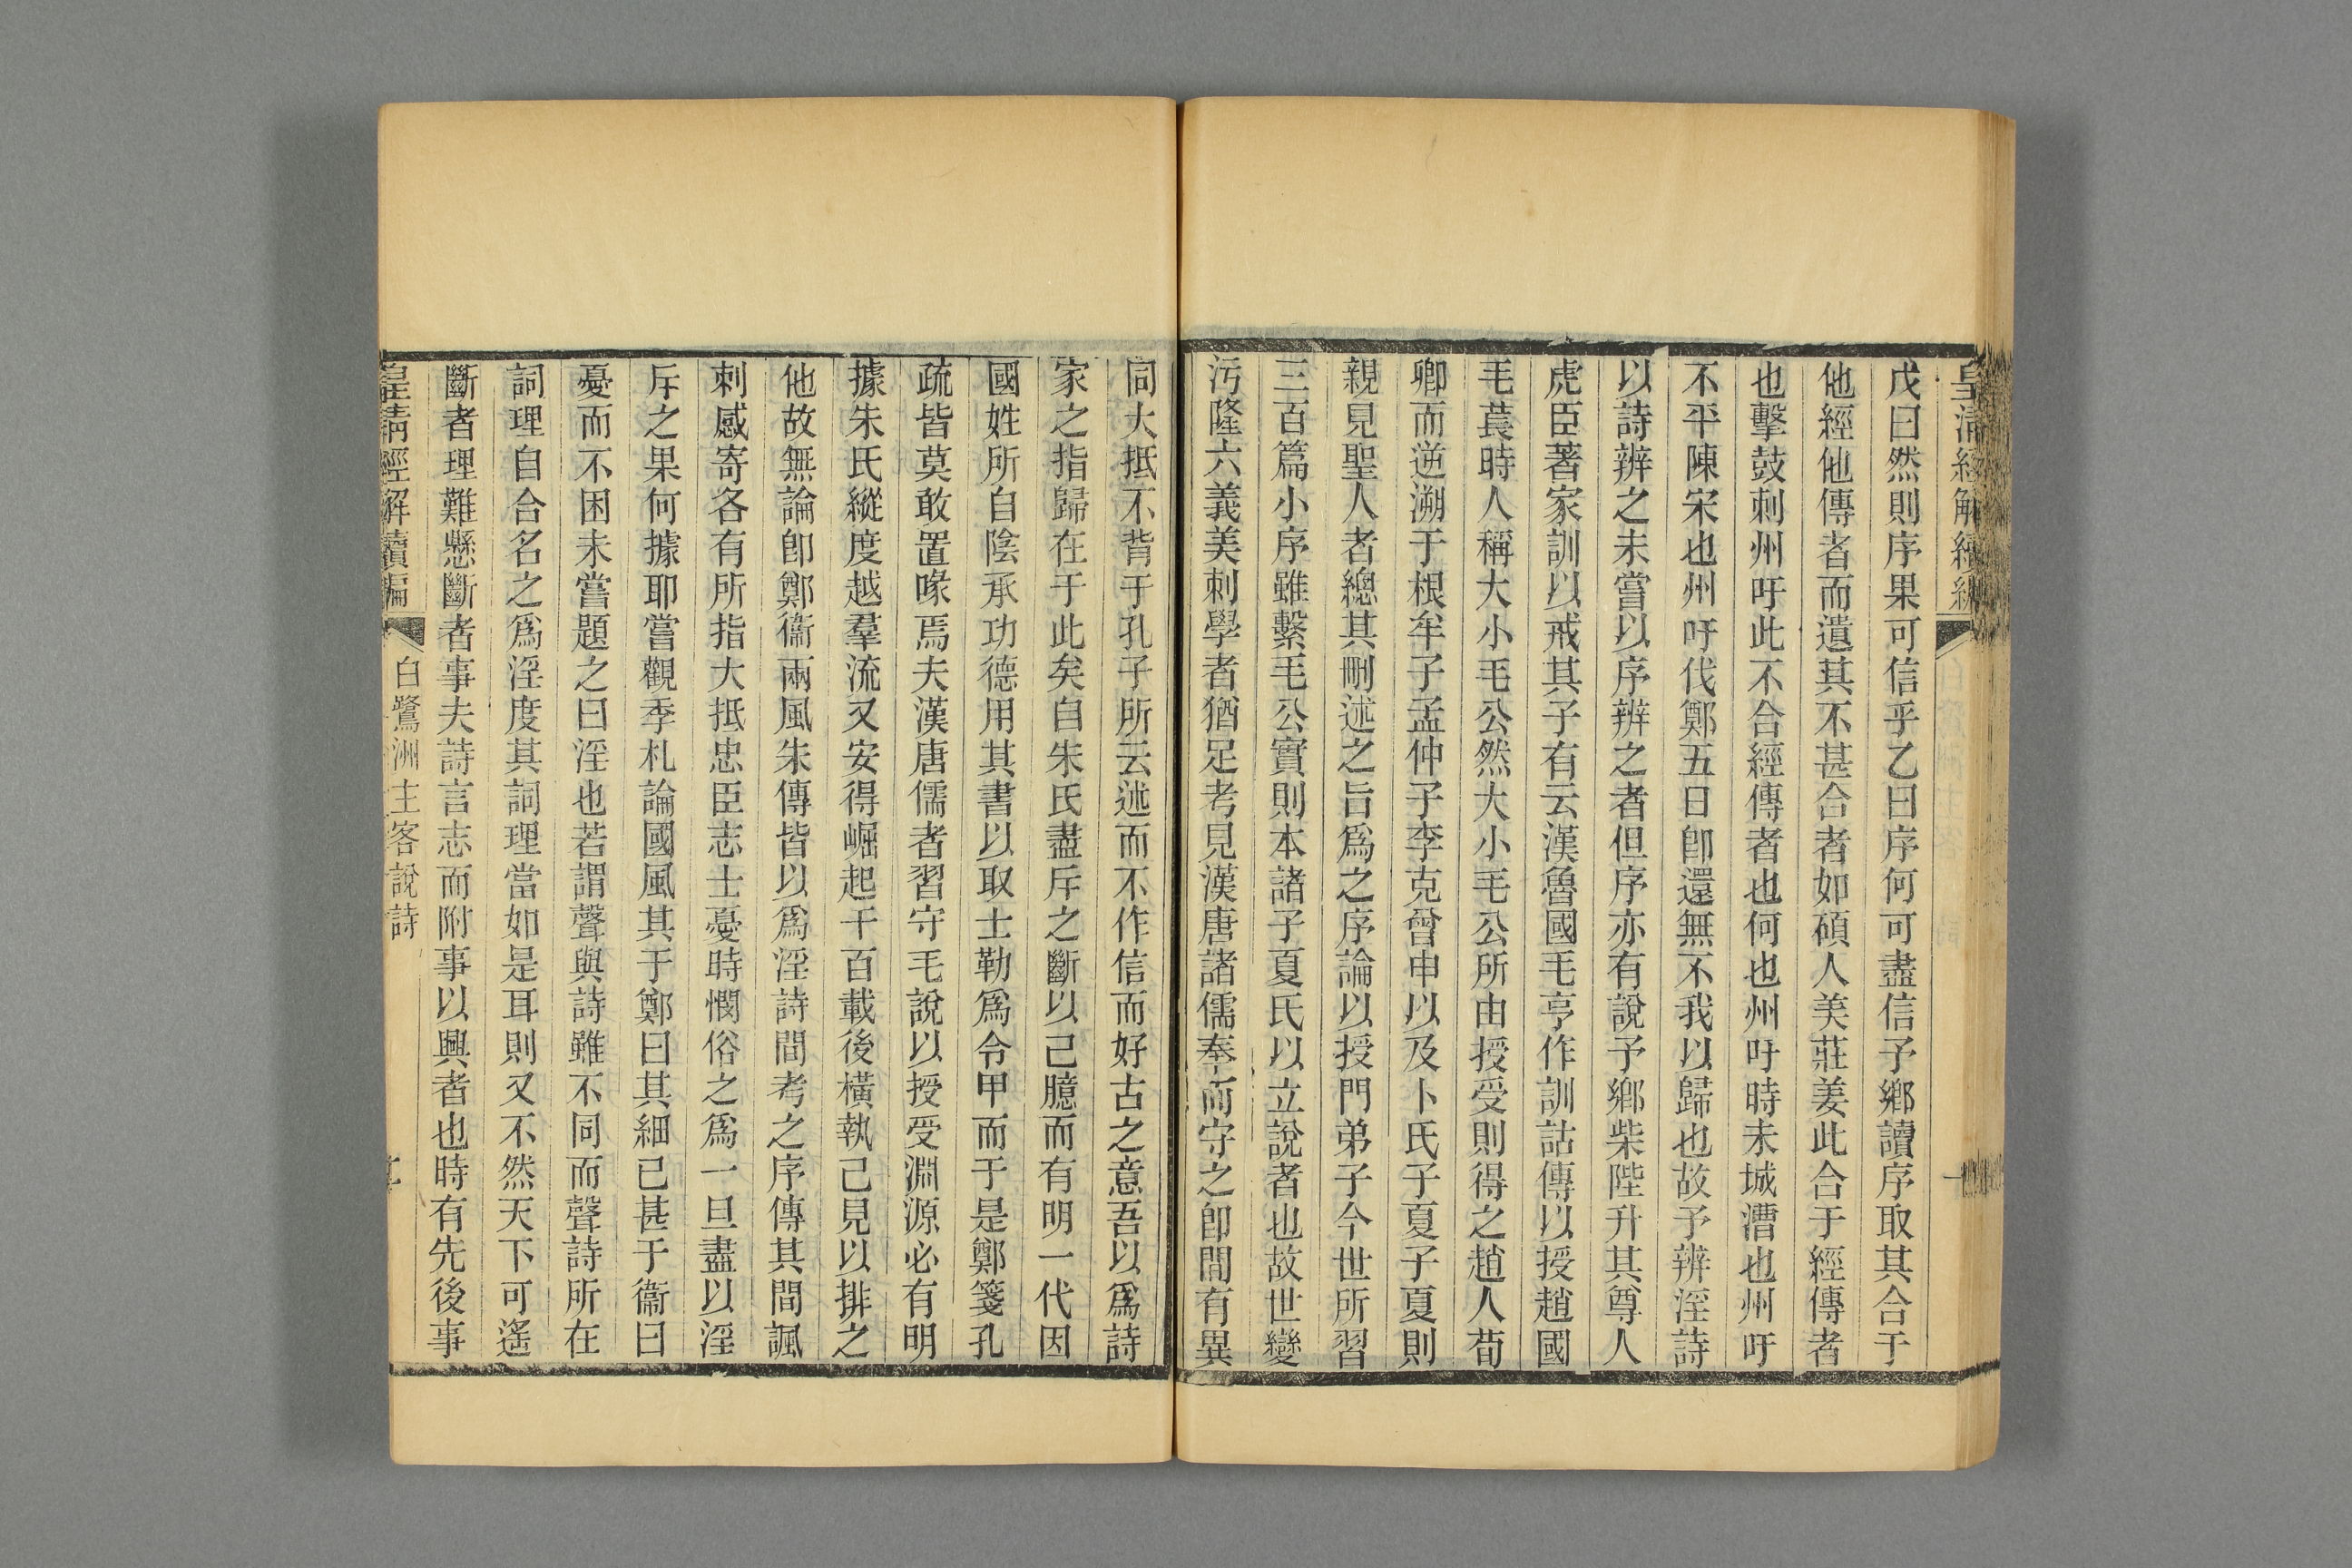 皇清經解續編
戊曰然則序果可信乎乙曰序何可盡信予鄉讀序取其合于
他經他傳者而遺其不甚合者如碩人美莊姜此合于經傳者
也擊鼓刺州吁此不合經傳者也何也州吁時未城漕也州吁
不平陳宋也州吁伐鄭五日卽還無不我以歸也故予辨淫詩
以詩辨之未嘗以序辨之者但序亦有說予鄉柴陛升其尊人
虎臣著家訓以戒其子有云漢魯國毛亨作訓詁傳以授趙國
毛萇時人稱大小毛公然大小毛公所由授受則得之趙人荀
卿而逆溯于根牟子孟仲子李克曾申以及卜氏子夏子夏則
親見聖人者總其刪述之旨爲之序論以授門弟子今世所習
三百篇小序雖繫毛公實則本諸子夏氏以立說者也故世變
污隆六義美刺學者猶足考見漢唐諸儒奉而守之卽間有異
同大抵不背于孔子所云述而不作信而好古之意吾以爲詩
家之指歸在于此矣自朱氏盡斥之斷以己臆而有明一代因
國姓所自陰承功德用其書以取士勒爲令甲而于是鄭箋孔
疏皆莫敢置喙焉夫漢唐儒者習守毛說以授受淵源必有明
據朱氏縱度越羣流又安得崛起千百載後橫執己見以排之
他故無論卽鄭衞兩風朱傳皆以爲淫詩間考之序傳其間諷
刺感寄各有所指大抵忠臣志士憂時憫俗之爲一旦盡以淫
斥之果何據耶嘗觀季札論國風其于鄭曰其細已甚于衞曰
憂而不困未嘗題之曰淫也若謂聲與詩雖不同而聲詩所在
詞理自合名之爲淫度其詞理當如是耳則又不然天下可遙
斷者理難懸斷者事夫詩言志而附事以興者也時有先後事
皇淸經解續編
白鷺洲主客說詩